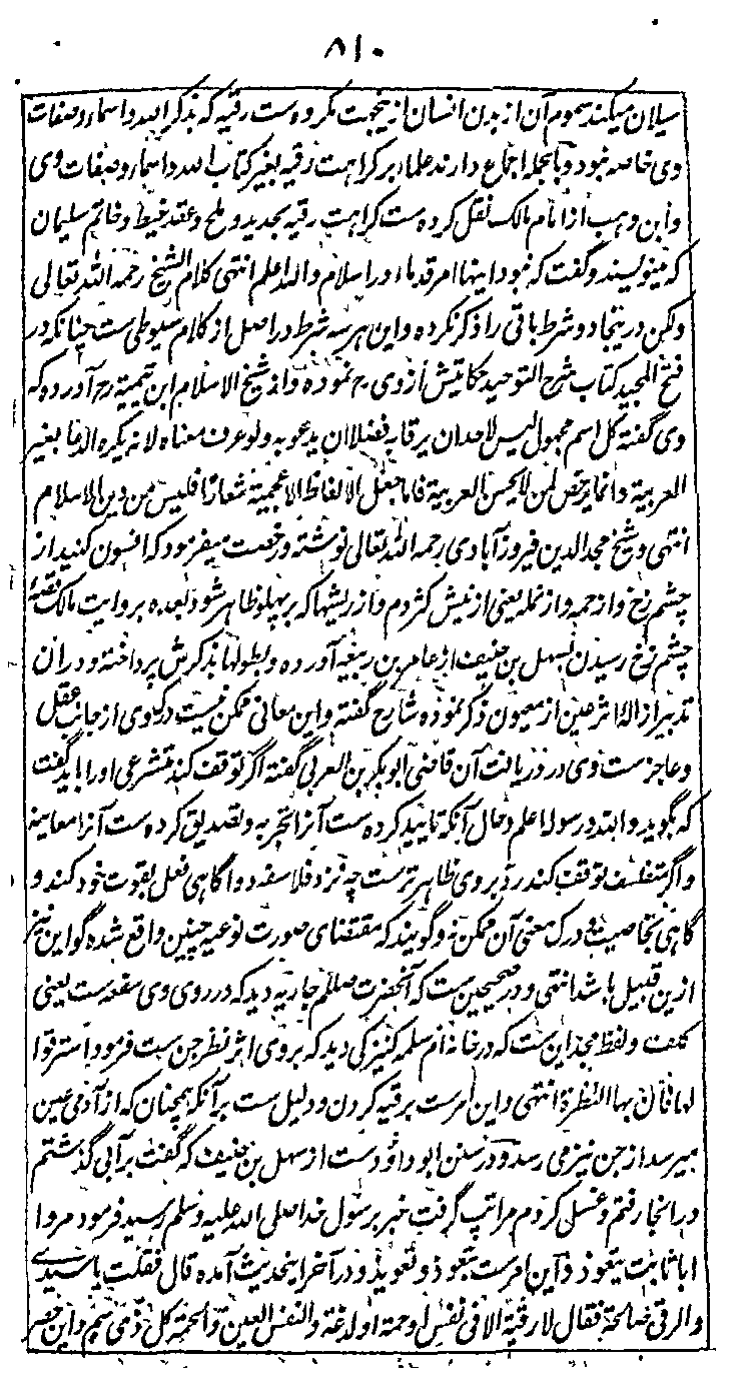 ۸۱۰
سیلان میکند سموم آن از بدن انسان ازینجهت مکروه ست رقیه که بذکر الله و اسماء و صفات
وی خاصه نبود و بالجمله اجماع دارند علماء بر کراهت رقیه بغیر کتاب الله و اسماء و صفات وی
و ابن وهب از امام مالک نقل کرده ست کراهت رقیه بحدید و ملح و عقد خیط و خاتم سلیمان
که مینویسند و گفت که نبود اینها امر قدماء در اسلام والله اعلم انتهی کلام الشیخ رحمه الله تعالی
ولکن درینجا دو شرط باقی را ذکر نکرده و این هر سه شرط در اصل از کلام سیوطی ست چنانکه در
فتح المجید کتاب شرح التوحید حکایتش از وی رح نموده و از شیخ الاسلام ابن تیمیة رح آورده که
وی گفته کل اسم مجهول لیس لاحد ان یرقی به فضلا ان یدعو به ولو عرف معناه لانه یکره الدعا بغیر
العربیة وانما یرخص لمن لا یحسن العربیة فاما جعل الالفاظ الاعجمیة شعارا فلیس من دین الاسلام
انتهی و شیخ مجدالدین فیروزآبادی رحمه الله تعالی نوشته و رخصت میفرمود که افسون کنید از
چشم زخ و از حمه و از نمله یعنی از نیش کژدم و از ریشها که بر پهلو ظاهر شود بعده بروایت مالک قصهٔ
چشم زخ رسیدن بسهل بن حنیف از عامر بن ربیعه آورده و بطولها بذکرش پرداخته و دران
تدبیر ازالهٔ اثر عین از معیون ذکر نموده شارح گفته و این معانی ممکن نیست درک وی از جانب عقل
و عاجز ست وی در دریافت آن قاضی ابو بکر بن العربی گفته اگر توقف کند متشرعی او را باید گفت
که بگوید والله و رسوله اعلم و حال آنکه تایید کرده ست آنرا تجربه و تصدیق کرده ست آنرا معاینه
و اگر متفلسف توقف کند رد بر وی ظاهر تر ست چه نزد فلاسفه دوا گاهی فعل بقوت خود کند و
گاهی بخاصیت و درک معنی آن ممکن نه و گویند که مقتضای صورت نوعیه چنین واقع شده گو این نیز
ازین قبیل باشد انتهی و در صحیحین ست که آنحضرت صلعم جاریه دید که در روی وی سفعه ست یعنی
کلفت و لفظ مجد این ست که در خانه ام سلمه کنیزکی دید که بروی اثر نظر جن ست فرمود استرقوا
لها فان بها النظرة انتهی و این امر ست برقیه کردن و دلیل ست بر آنکه همچنان که از آدمی عین
میرسد از جن نیز می رسد و در سنن ابو داؤد ست از سهل بن حنیف که گفت بر آبی گذشتم
در انجا رفتم و غسلی کردم مرا تپ گرفت خبر برسول خدا صلی الله علیه وسلم رسید فرمود مروا
ابا ثابت یتعوذ و این امر ست بتعوذ و تعویذ و در آخر اینحدیث آمده قال فقلت یا سیدی
والرقی صالحة فقال لا رقیة الا فی نفس او حمة او لدغة والنفس العین والحمة کل ذی سم و این حصر